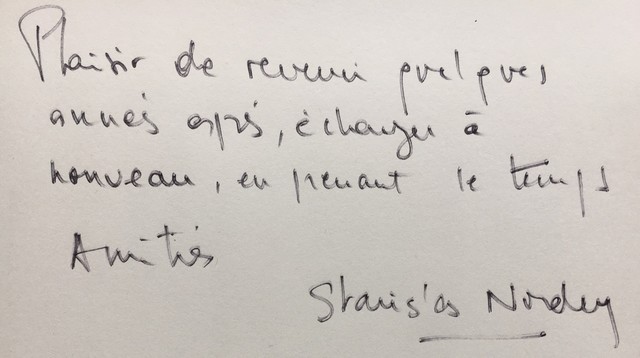 Plaisir de revenir quelques
années après, échanger à
nouveau, en prenant le temps
Amitiés
Stanislas Nordey